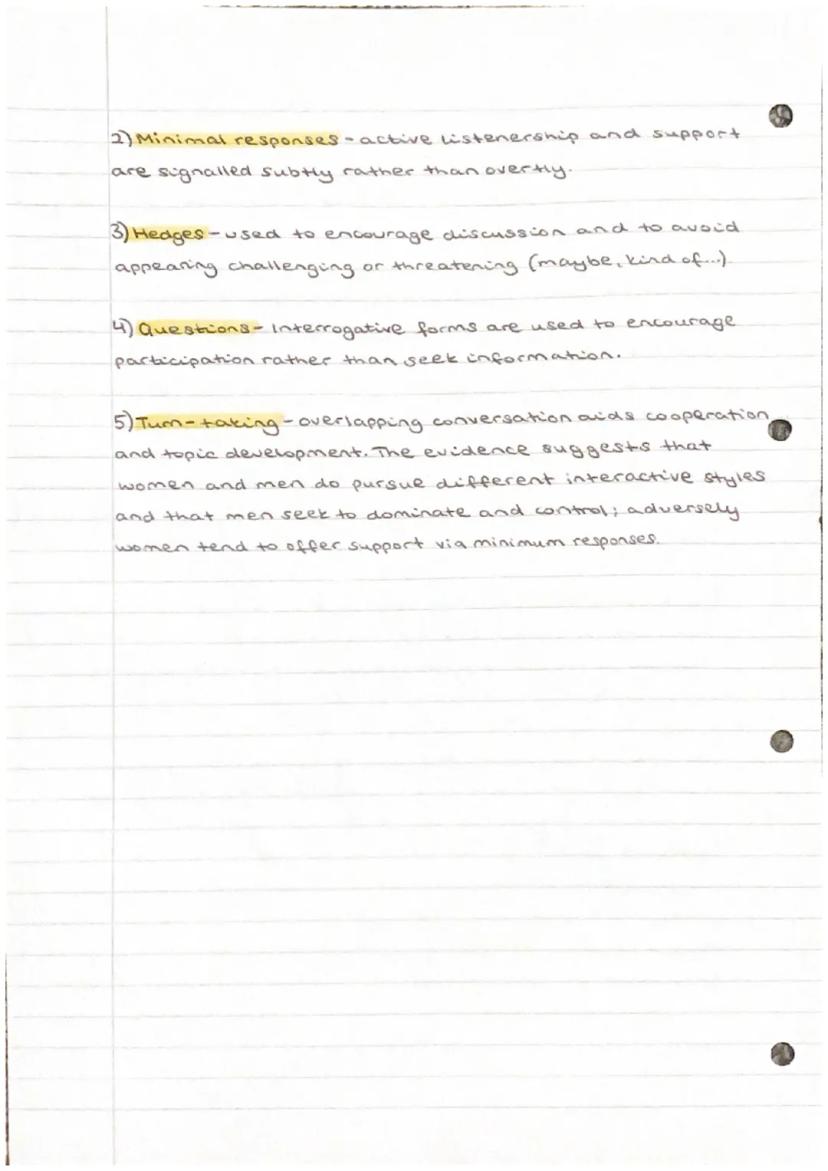 2) Minimal responses - active listenership and support
are signalled subtly rather than overtly.
3) Hedges - used to encourage discussion and to avoid
appearing challenging or threatening (maybe, kind of...).
4) Questions - Interrogative forms are used to encourage
participation rather than seek information.
5) Turn-taking - overlapping conversation aids cooperation
and topic development. The evidence suggests that
women and men do pursue different interactive styles
and that men seek to dominate and control; adversely
women tend to offer support via minimum responses.